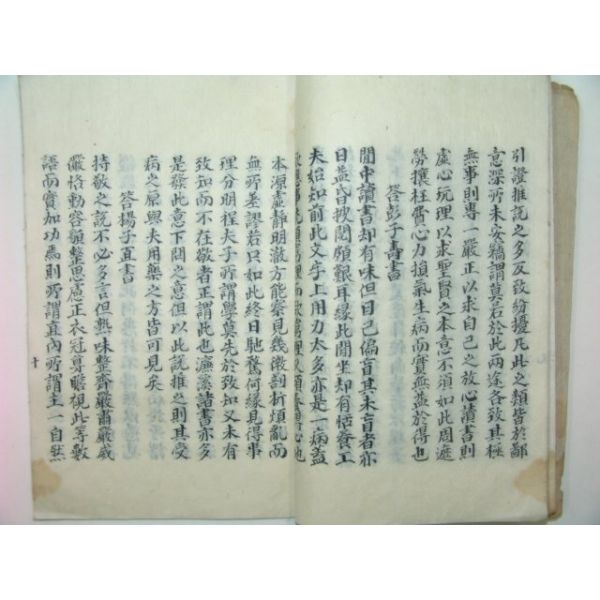 引證推說之多反致紛擾凡此之類皆於鄙
意深所未安竊謂莫若於此兩途各致其極
無事則專一嚴正以求自己之放心讀書則
虛心玩理以求聖賢之本意不須如此周遮
勞攘枉費心力損氣生病而實無益於得也
答彭子壽書
閒中讀書却有味但目已偏盲其未盲者亦
日益昏披閱頗艱耳緣此閒坐却有恬養工
夫始知前此文字上用力太多亦是一病蓋
欲應事先須窮理而欲窮理又須養得心地
本源虛靜明澈方能察見幾微剖析煩亂而
無所差謬若只如此終日馳騖何緣見得事
理分明程夫子所謂學莫先於致知又未有
致知而不在敬者正謂此也濂溪諸書亦多
是發此意下闋之意但以此說推之則其受
病之原與夫用藥之方皆可見矣
答楊子直書
持敬之說不必多言但熟味整齊嚴肅嚴威
儼恪動容貌整思慮正衣冠尊瞻視此等數
語而實加功焉則所謂直內所謂主一自然
十